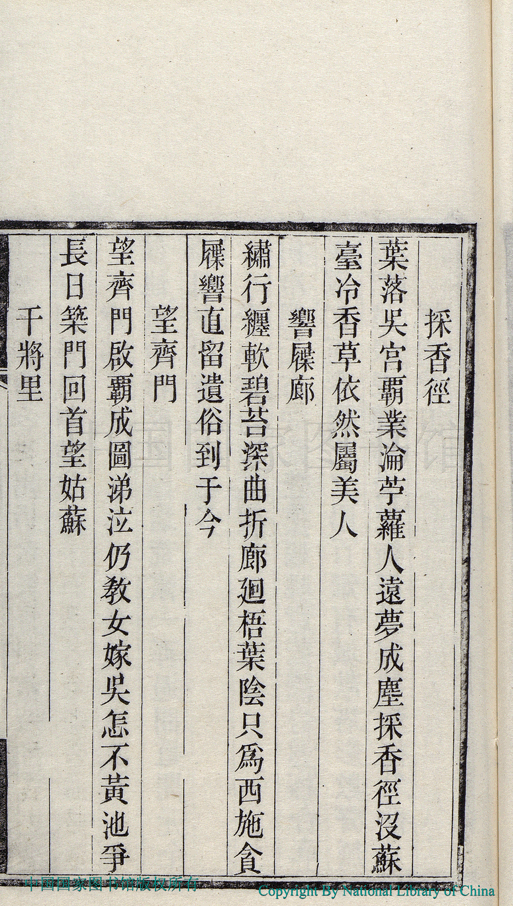 採香徑
葉落吳宮霸業淪苧蘿人遠夢成塵採香徑沒蘇
臺冷香草依然屬美人
響屧廊
繡行纏軟碧苔深曲折廊廻梧葉陰只爲西施貪
屧響直留遺俗到于今
望齊門
望齊門啟霸成圖涕泣仍敎女嫁吳怎不黃池爭
長日築門回首望姑蘇
干將里
中国国家图书馆版权所有
Copyright By National Library of China